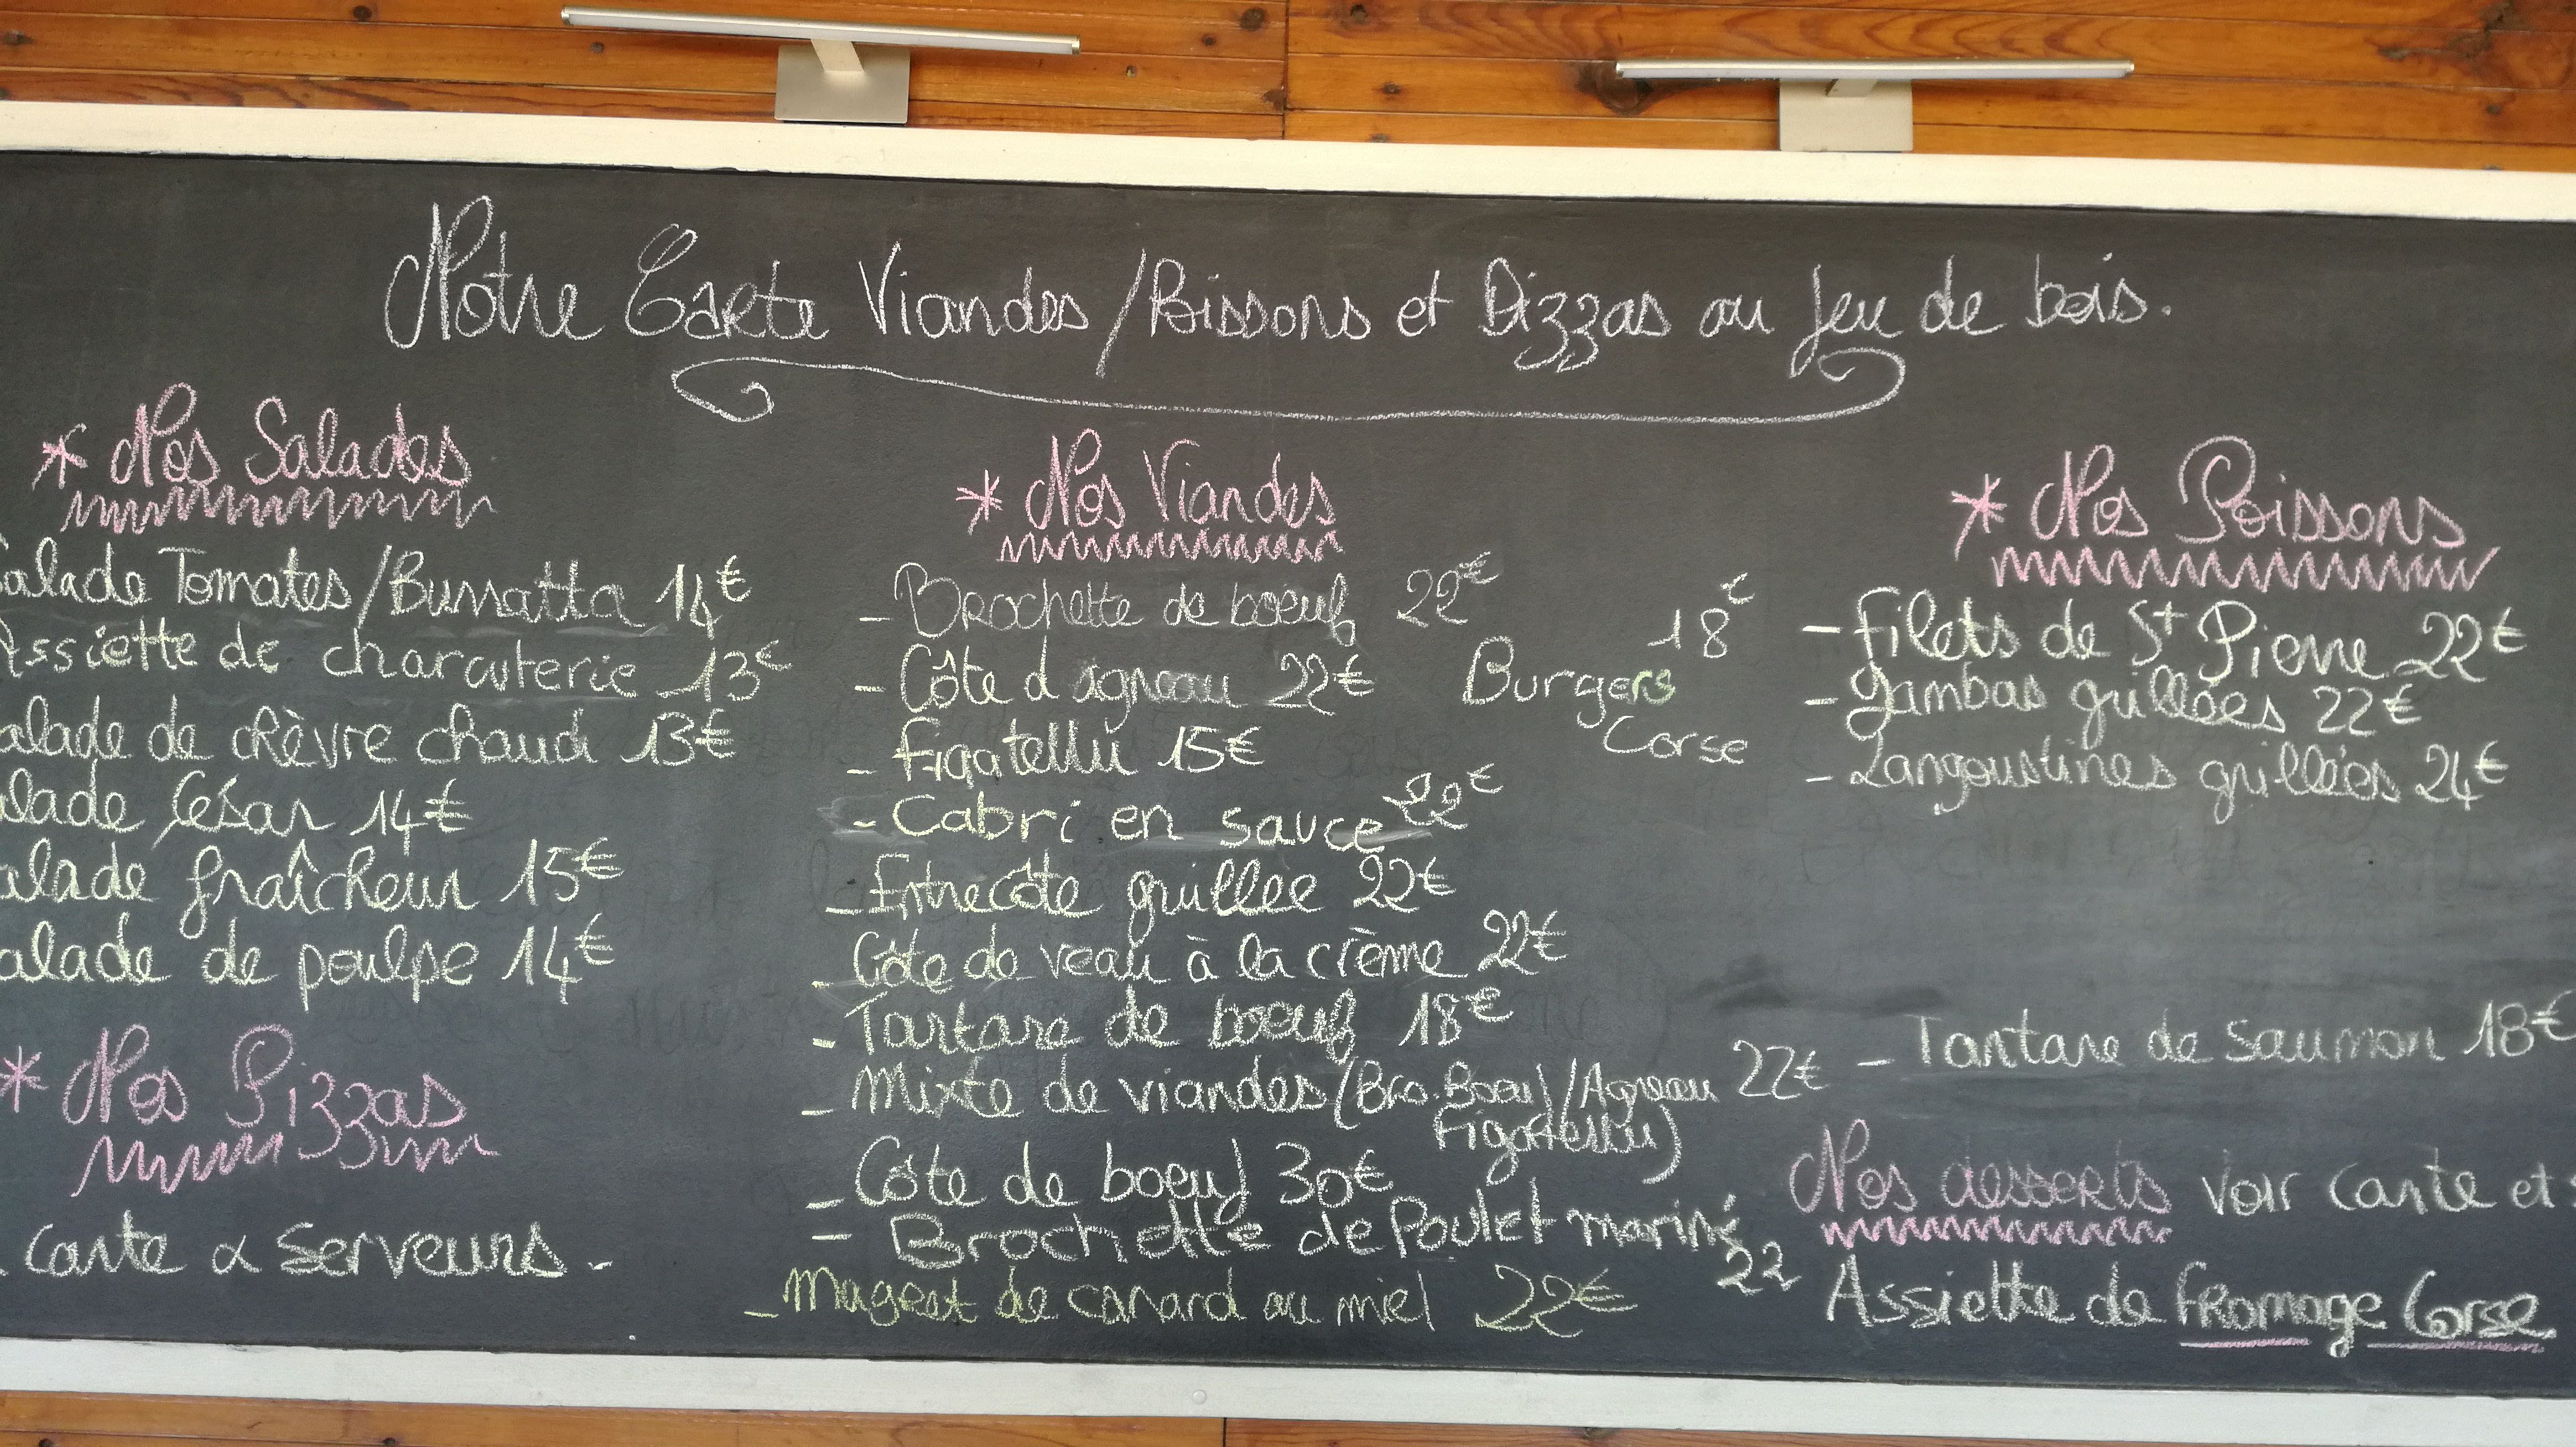 Notre Carte Viandes/Poissons et Pizzas au feu de bois.
* Nos Salades
Salade Tomates/Burratta 14€
Assiette de charcuterie 13€
alade de chèvre chaud 13€
alade César 14€
alade fraîcheur 15€
alade de poulpe 14€
* Nos Pizzas
Carte & Serveurs.
* Nos Viandes
- Brochette de boeuf 22€
- Côte d agneau 22€
- Figatellu 15€
- Cabri en sauce 22€
- Entrecôte grillée 22€
- Côte de veau à la crème 22€
- Tartare de boeuf 18€
- Mixte de viandes (Bro. Boeuf/Agneau 22€
Figatellu)
- Côte de boeuf 30€
- Brochette de Poulet mariné
22
- Magret de canard au miel 22€
18€
Burgers
Corse
* Nos Poissons
- Filets de St Pierre 22€
- Gambas grillées 22€
- Langoustines grillées 24€
- Tartare de saumon 18€
Nos desserts Voir Carte et
Assiette de fromage Corse